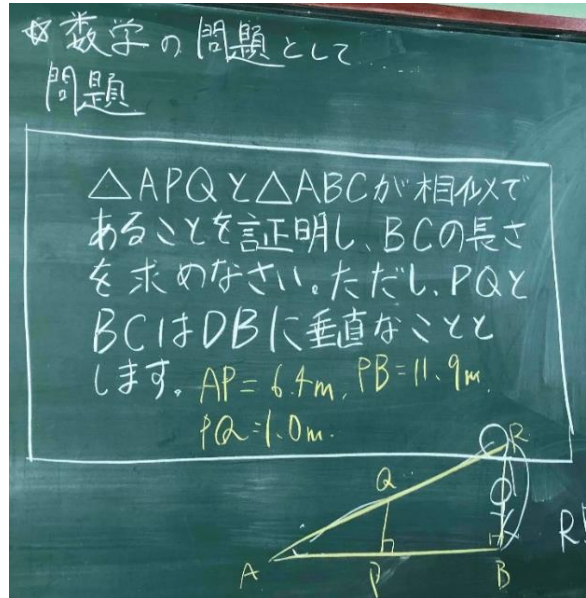 ☆数学の問題として
問題
△APQと△ABCが相似で
あることを証明し、BCの長さ
を求めなさい。ただし、PQと
BCはDBに垂直なことと
します。AP=6.4m, PB=11.9m.
PQ=1.0m.
R
Q
A
P
B
R